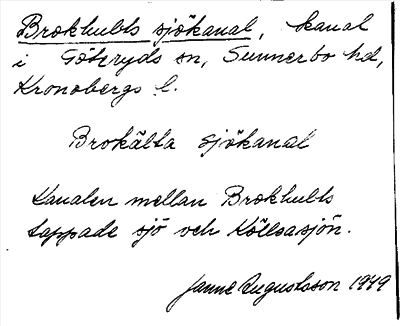 Brokhults sjökanal, kanal
i Göteryds sn, Sunnerbo hd,
Kronobergs l.
Brokälta sjökanal
Kanalen mellan Brokhults
tappade sjö och Köllsasjön.
Janne Augustsson 1949